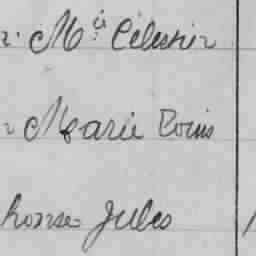 Mie Célestin
Marie Louis
honse Jules